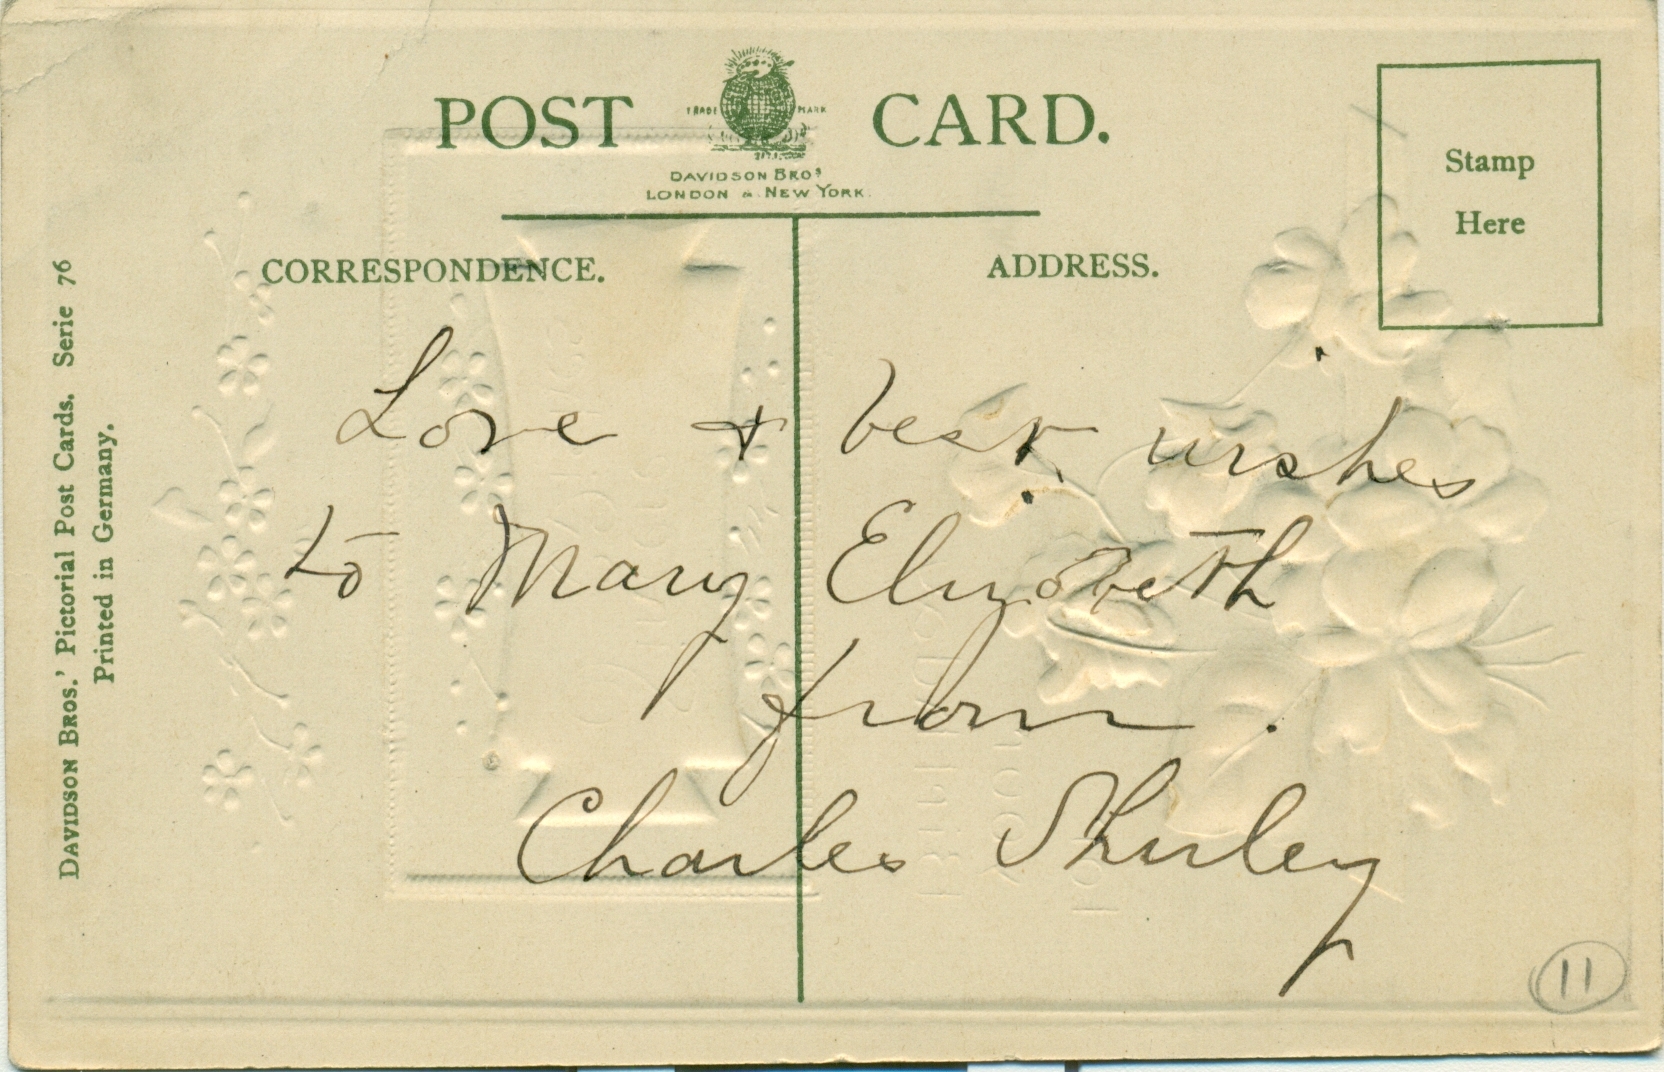 POST CARD.
TRADE MARK
DAVIDSON BROS
LONDON & NEW YORK.
Stamp
Here
CORRESPONDENCE.
ADDRESS.
Love + best wishes
to Mary Elizabeth
from
Charles Shurley
DAVIDSON BROS.' Pictorial Post Cards. Serie 76
Printed in Germany.
11